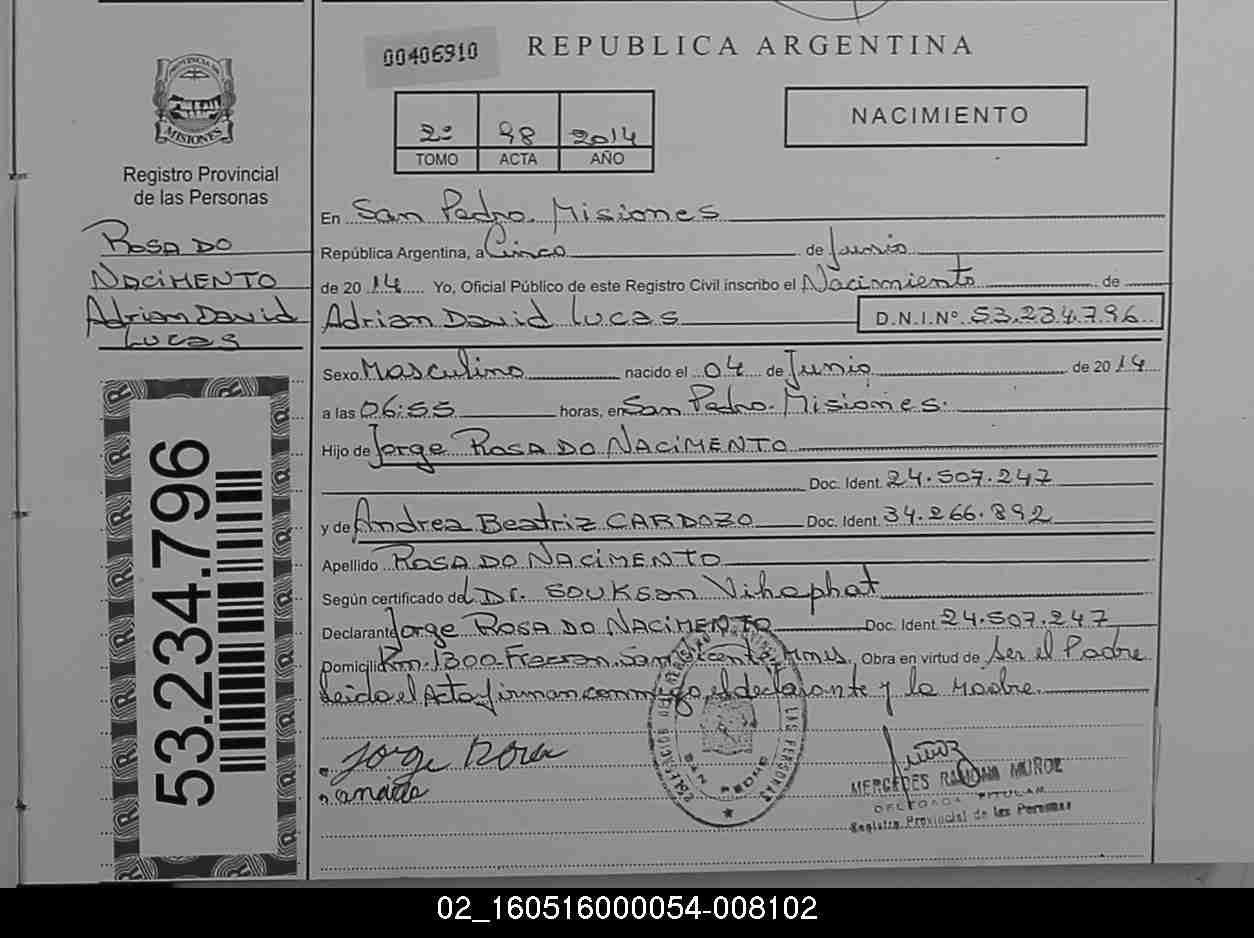 00406910
REPUBLICA ARGENTINA
NACIMIENTO
2º 98 2014
TOMO ACTA AÑO
PROVINCIA DE
MISIONES
Registro Provincial
de las Personas
ROSA DO
NACIMENTO
Adrian David
Lucas
53.234.796
En San Pedro. Misiones
República Argentina, a Cinco de Junio
de 2014 Yo, Oficial Público de este Registro Civil inscribo el Nacimiento de
Adrian David Lucas D.N.I.Nº 53.234.796
Sexo Masculino nacido el 04 de Junio de 2014
a las 06:55 horas, en San Pedro. Misiones.
Hijo de Jorge ROSA DO NACIMENTO
Doc. Ident. 24.507.247
y de Andrea Beatriz CARDOZO Doc. Ident. 34.266.892
Apellido ROSA DO NACIMENTO
Según certificado del Dr. SOUKSan Vihaphat
Declarante Jorge ROSA DO NACIMENTO Doc. Ident. 24.507.247
Domicilio Km. 1300-Fracran. San Vicente, Mnes. Obra en virtud de Ser el Padre
Leida el Acta firman conmigo, el declarante y la Madre.
Jorge Rosa
SAN PEDRO
LAS PERSONAS
MERCEDES RAMONA MUÑOZ
DELEGADA TITULAR
Registro Provincial de las Personas
02_160516000054-008102